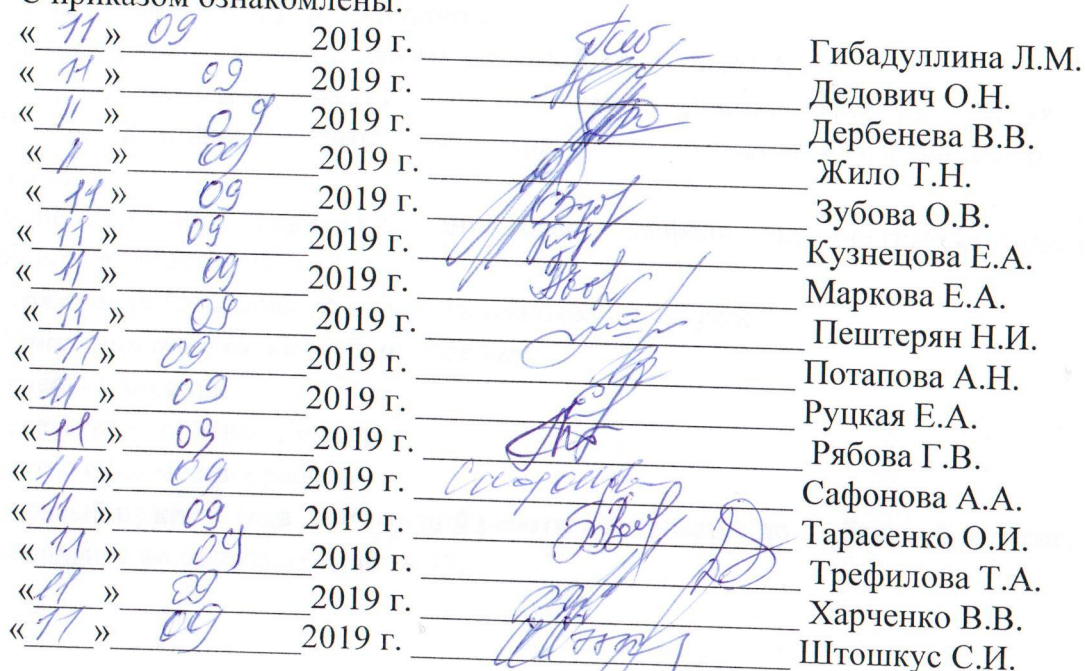 С приказом ознакомлены:
« 11 » 09 2019 г. Гибадуллина Л.М.
« 11 » 09 2019 г. Дедович О.Н.
« 11 » 09 2019 г. Дербенева В.В.
« 11 » 09 2019 г. Жило Т.Н.
« 11 » 09 2019 г. Зубова О.В.
« 11 » 09 2019 г. Кузнецова Е.А.
« 11 » 09 2019 г. Маркова Е.А.
« 11 » 09 2019 г. Пештерян Н.И.
« 11 » 09 2019 г. Потапова А.Н.
« 11 » 09 2019 г. Руцкая Е.А.
« 11 » 09 2019 г. Рябова Г.В.
« 11 » 09 2019 г. Сафонова А.А.
« 11 » 09 2019 г. Тарасенко О.И.
« 11 » 09 2019 г. Трефилова Т.А.
« 11 » 09 2019 г. Харченко В.В.
« 11 » 09 2019 г. Штошкус С.И.